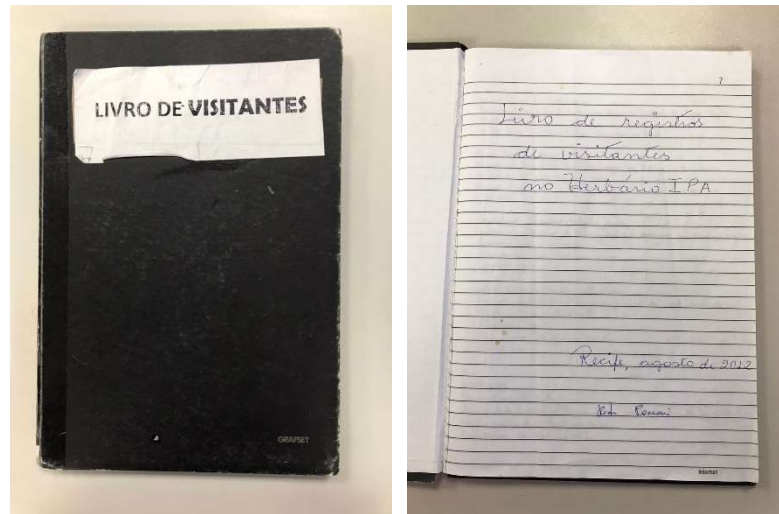 LIVRO DE VISITANTES
GRAFSET
7
Livro de registros
de visitantes
no Herbário IPA
Recife, agosto de 2012
GRAFSET